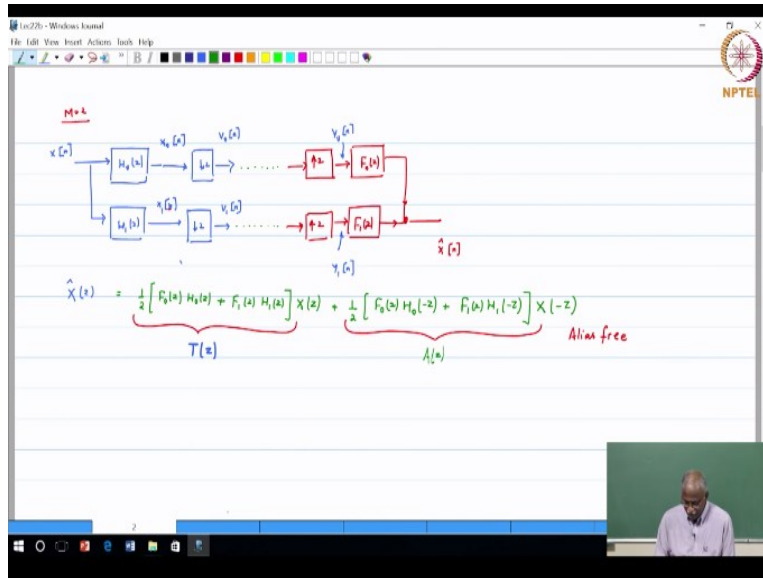 Lec22b - Windows Journal
File Edit View Insert Actions Tools Help
NPTEL
M=2
x[n] H₀(z) x₀[n] ↓2 v₀[n] ........ ↑2 y₀[n] F₀(z)
H₁(z) x₁[n] ↓2 v₁[n] ........ ↑2 y₁[n] F₁(z) x̂[n]
X̂(z) = ½ [ F₀(z) H₀(z) + F₁(z) H₁(z) ] X(z) + ½ [ F₀(z) H₀(-z) + F₁(z) H₁(-z) ] X(-z)
T(z) A(z) Alias free
2